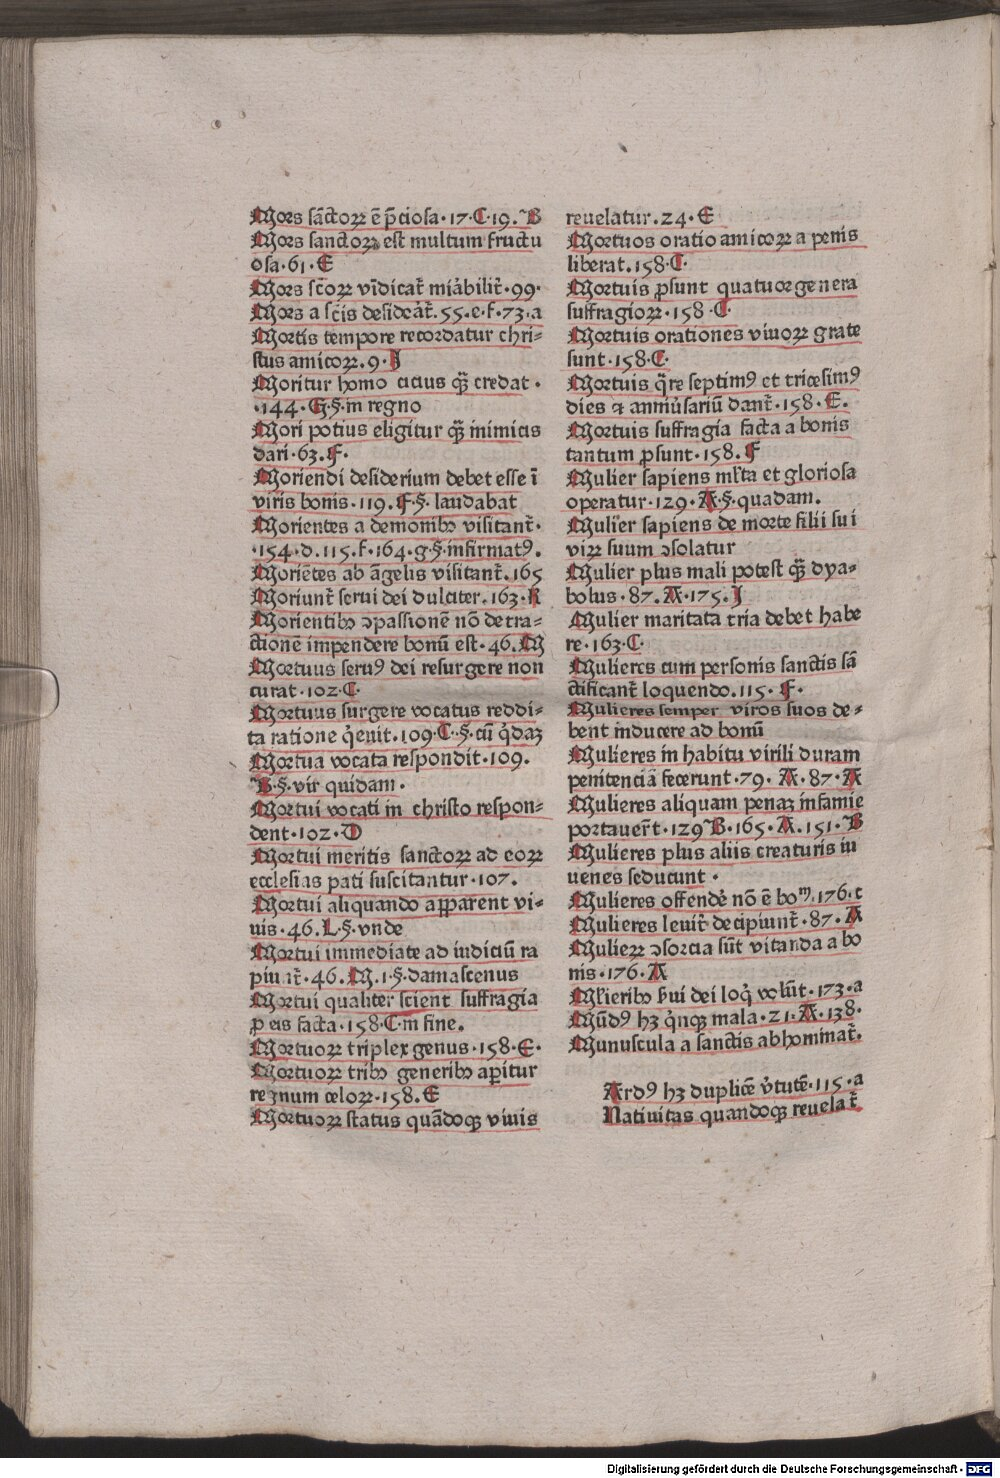 Mors sãctoꝝ ē p̄ciosa·17·C·19.B
Mors sanctoꝝ est multum fructu
osa·61·E
Mors sc̄oꝝ vīdicat̄ mirabilit̄·99·
Mors a sc̄is desiderat̄.55.e·f·73·a
Mortis tempore recordatur chri⸗
stus amicoꝝ.9·J
Moritur homo citius qꝫ̄ credat·
·144·G·§·in regno
Mori potius eligitur qꝫ̄ inimicis
dari·63.F·
Moriendi desiderium debet esse ī
viris bonis·119.F·§·laudabat
Morientes a demonibꝫ visitant̄·
·154·d.115.f·164·g·§·infirmatꝰ.
Moriētes ab āgelis visitant̄.165
Moriunt̄ serui dei dulciter.163·R
Morientibꝫ ↄpassionē nō detra⸗
ctionē impendere bonū est·46.M
Mortuus seruꝰ dei resurgere non
curat·102·C·
Mortuus surgere vocatus reddi⸗
ta ratione q̇euit.109·C·§·cū q̇daꝫ
Mortua vocata respondit·109.
B·§·vir quidam·
Mortui vocati in christo respon⸗
dent·102·D
Mortui meritis sanctoꝝ ad eoꝝ
ecclesias pati suscitantur·107.
Mortui aliquando apparent vi⸗
uis·46.L·§·vnde
Mortui immediate ad iudiciū ra
piunt̄·46.M.1·§·damascenus
Mortui qualiter scient suffragia
ꝓ eis facta·158·C·in fine.
Mortuoꝝ triplex genus·158·E·
Mortuoꝝ tribꝫ generibꝫ aperitur
regnum celoꝝ·158.E
Mortuoꝝ status quādoqꝫ viuis
reuelatur.24·E
Mortuos oratio amicoꝝ a penis
liberat.158·C·
Mortuis ꝓsunt quatuor genera
suffragioꝝ·158·C·
Mortuis orationes viuoꝝ grate
sunt·158·C·
Mortuis q̄re septimꝰ et tricesimꝰ
dies ⁊ anniu̇sariū dant̄·158·E.
Mortuis suffragia facta a bonis
tantum ꝓsunt·158.F
Mulier sapiens ml̄ta et gloriosa
operatur·129·A·§·quadam.
Mulier sapiens de morte filii sui
viꝝ suum ↄsolatur
Mulier plus mali potest qꝫ̄ dya⸗
bolus·87.A·175.J
Mulier maritata tria debet habe
re·163·C·
Mulieres cum personis sanctis sā
ctificant̄ loquendo.115·F·
Mulieres semper viros suos de⸗
bent inducere ad bonū
Mulieres in habitu virili duram
penitenciā fecerunt·79.A·87·A
Mulieres aliquam penaꝫ infamie
portauer̄t·129 B·165·A.151·B
Mulieres plus aliis creaturis iu
uenes seducunt·
Mulieres offende̍ nō ē boᵐ.176.c
Mulieres leuit̄ decipiunt̄·87·A
Mulieꝝ ↄsorcia sūt vitanda a bo
nis·176·A
Ml̄ieribꝫ s̄ui dei loq̇ volūt·173·a
Mūdꝰ hꝫ q̇nqꝫ mala·21·A·138·
Munuscula a sanctis abhominat̄.
Ardꝰ hꝫ duplicē v̇tutē·115·a
Natiuitas quandoqꝫ reuelat̄
Digitalisierung gefördert durch die Deutsche Forschungsgemeinschaft · DFG